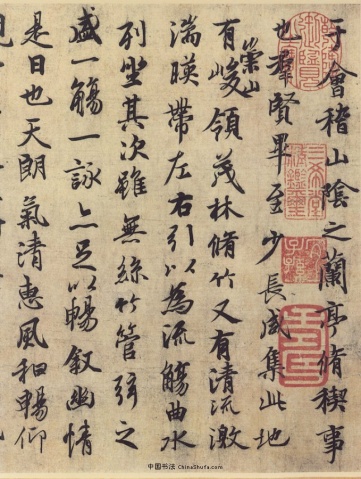 于會稽山陰之蘭亭脩稧事
也羣賢畢至少長咸集此地
有崇山峻領茂林脩竹又有清流激
湍暎帶左右引以為流觴曲水
列坐其次雖無絲竹管弦之
盛一觴一詠亦足以暢敘幽情
是日也天朗氣清惠風和暢仰
三希堂精鑑璽
宜子孫
中国书法 ChinaShufa.com